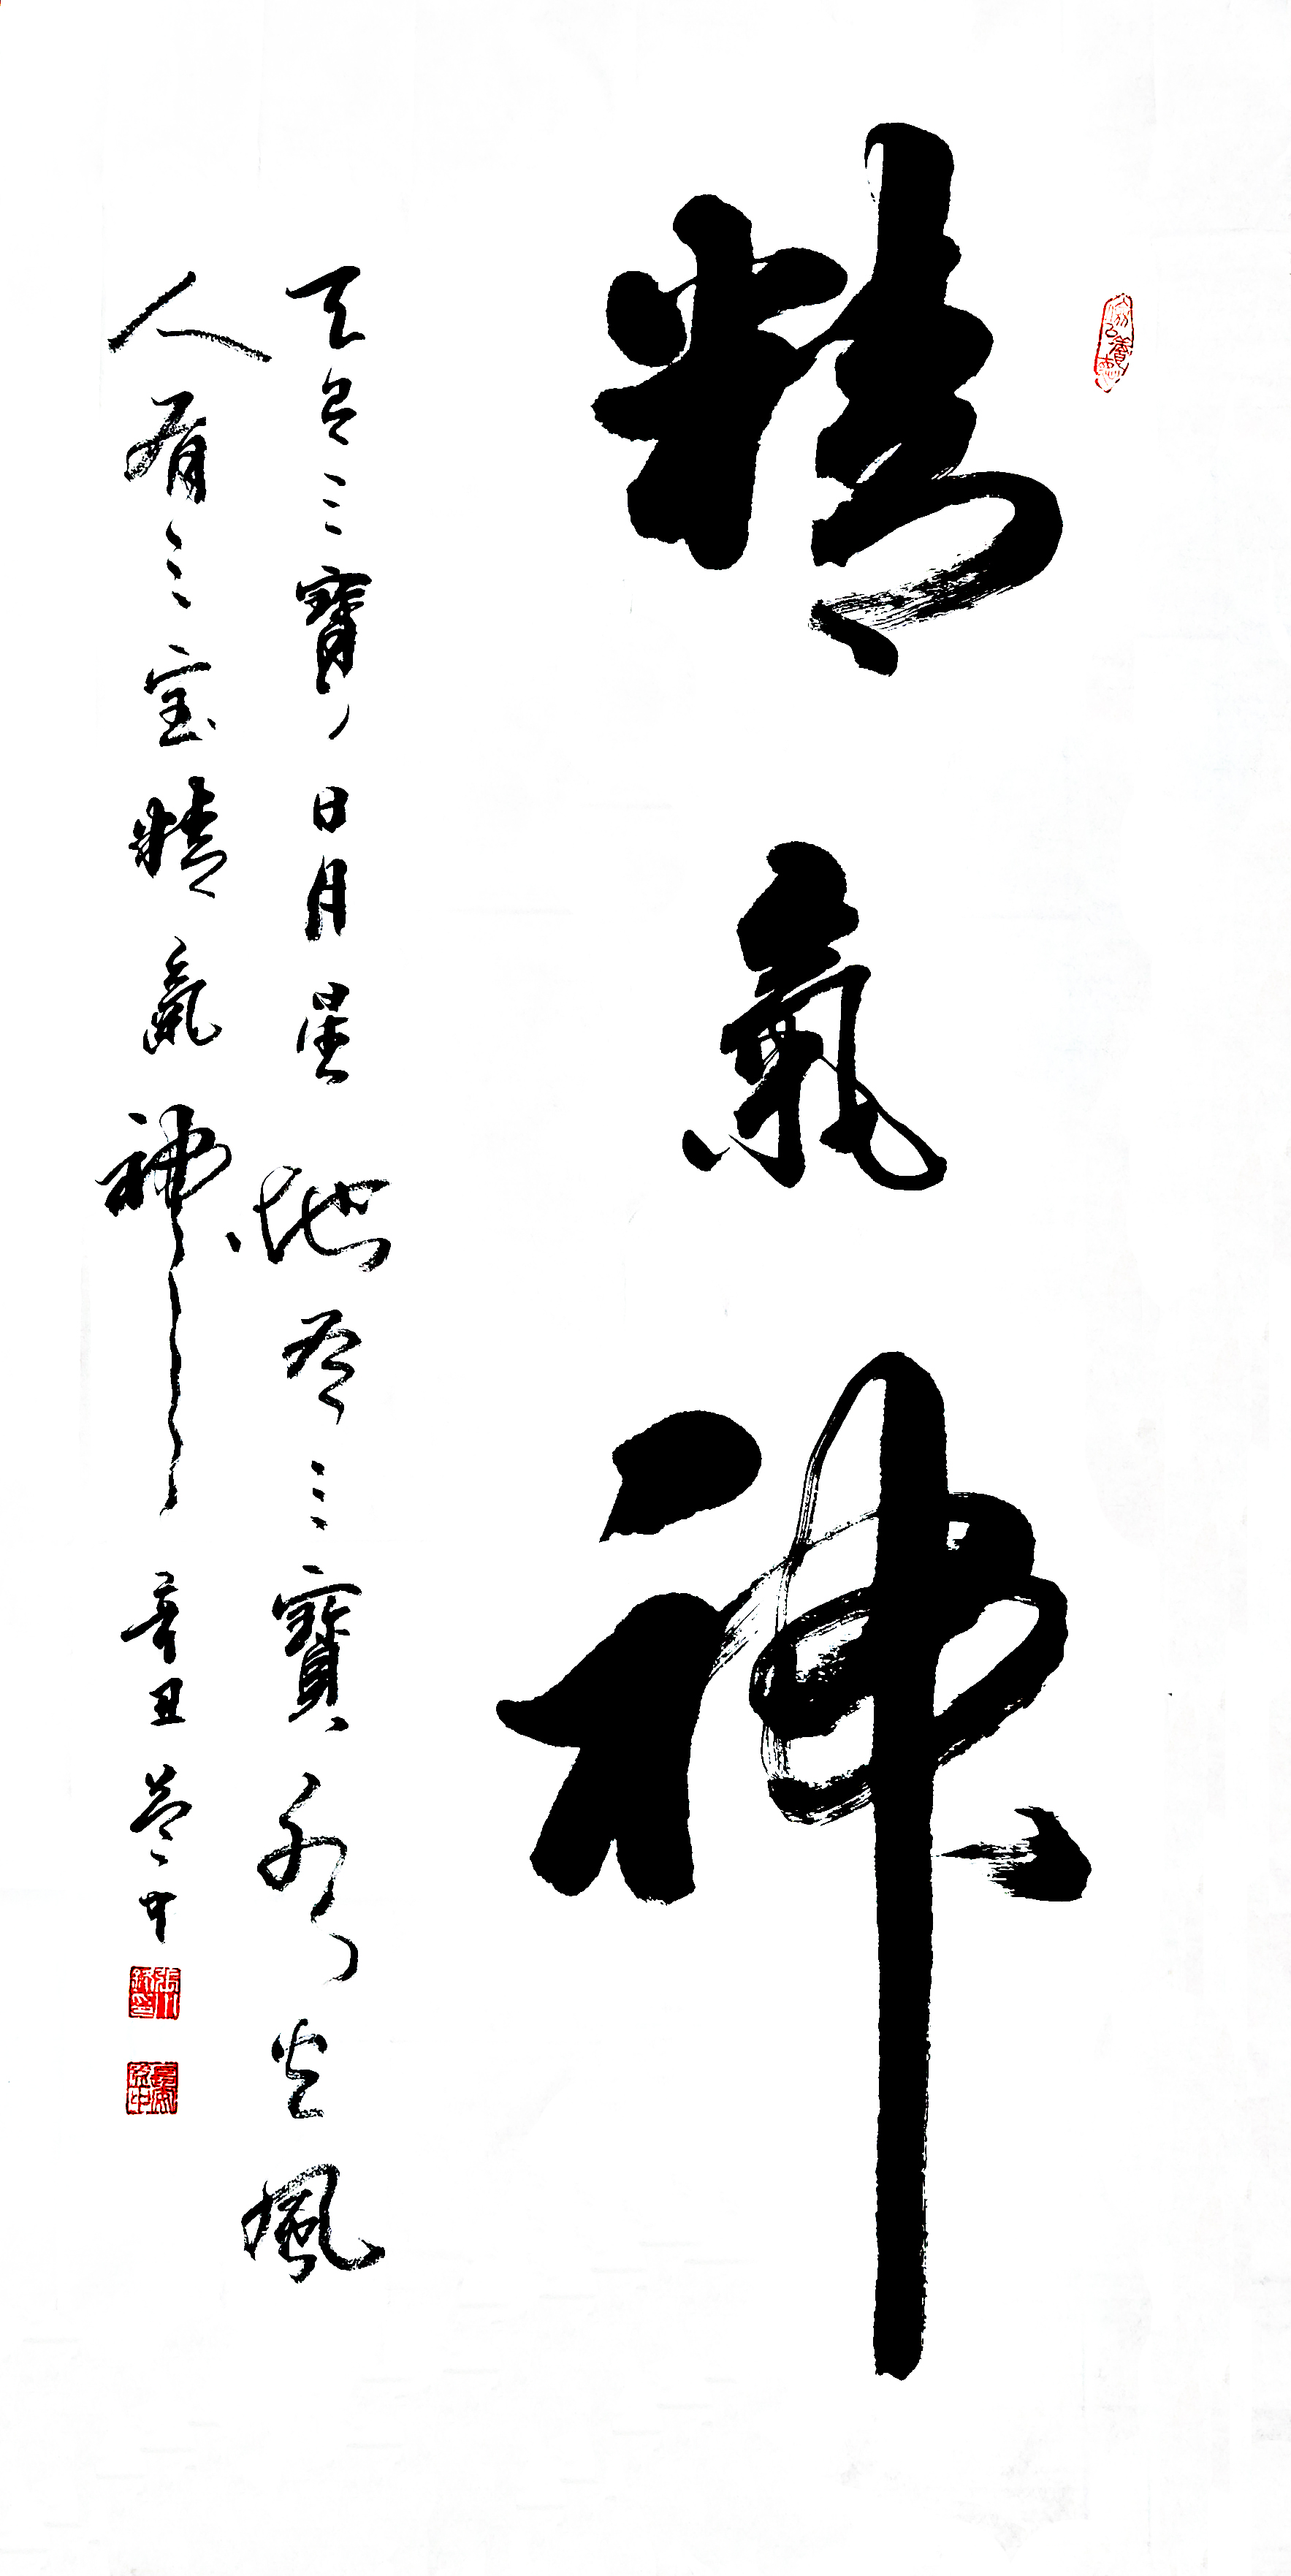 精氣神
天有三寶日月星地有三寶水火風
人有三宝精氣神辛丑